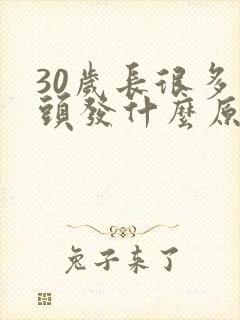 30歲長很多
頭發什麼原
兔子来了